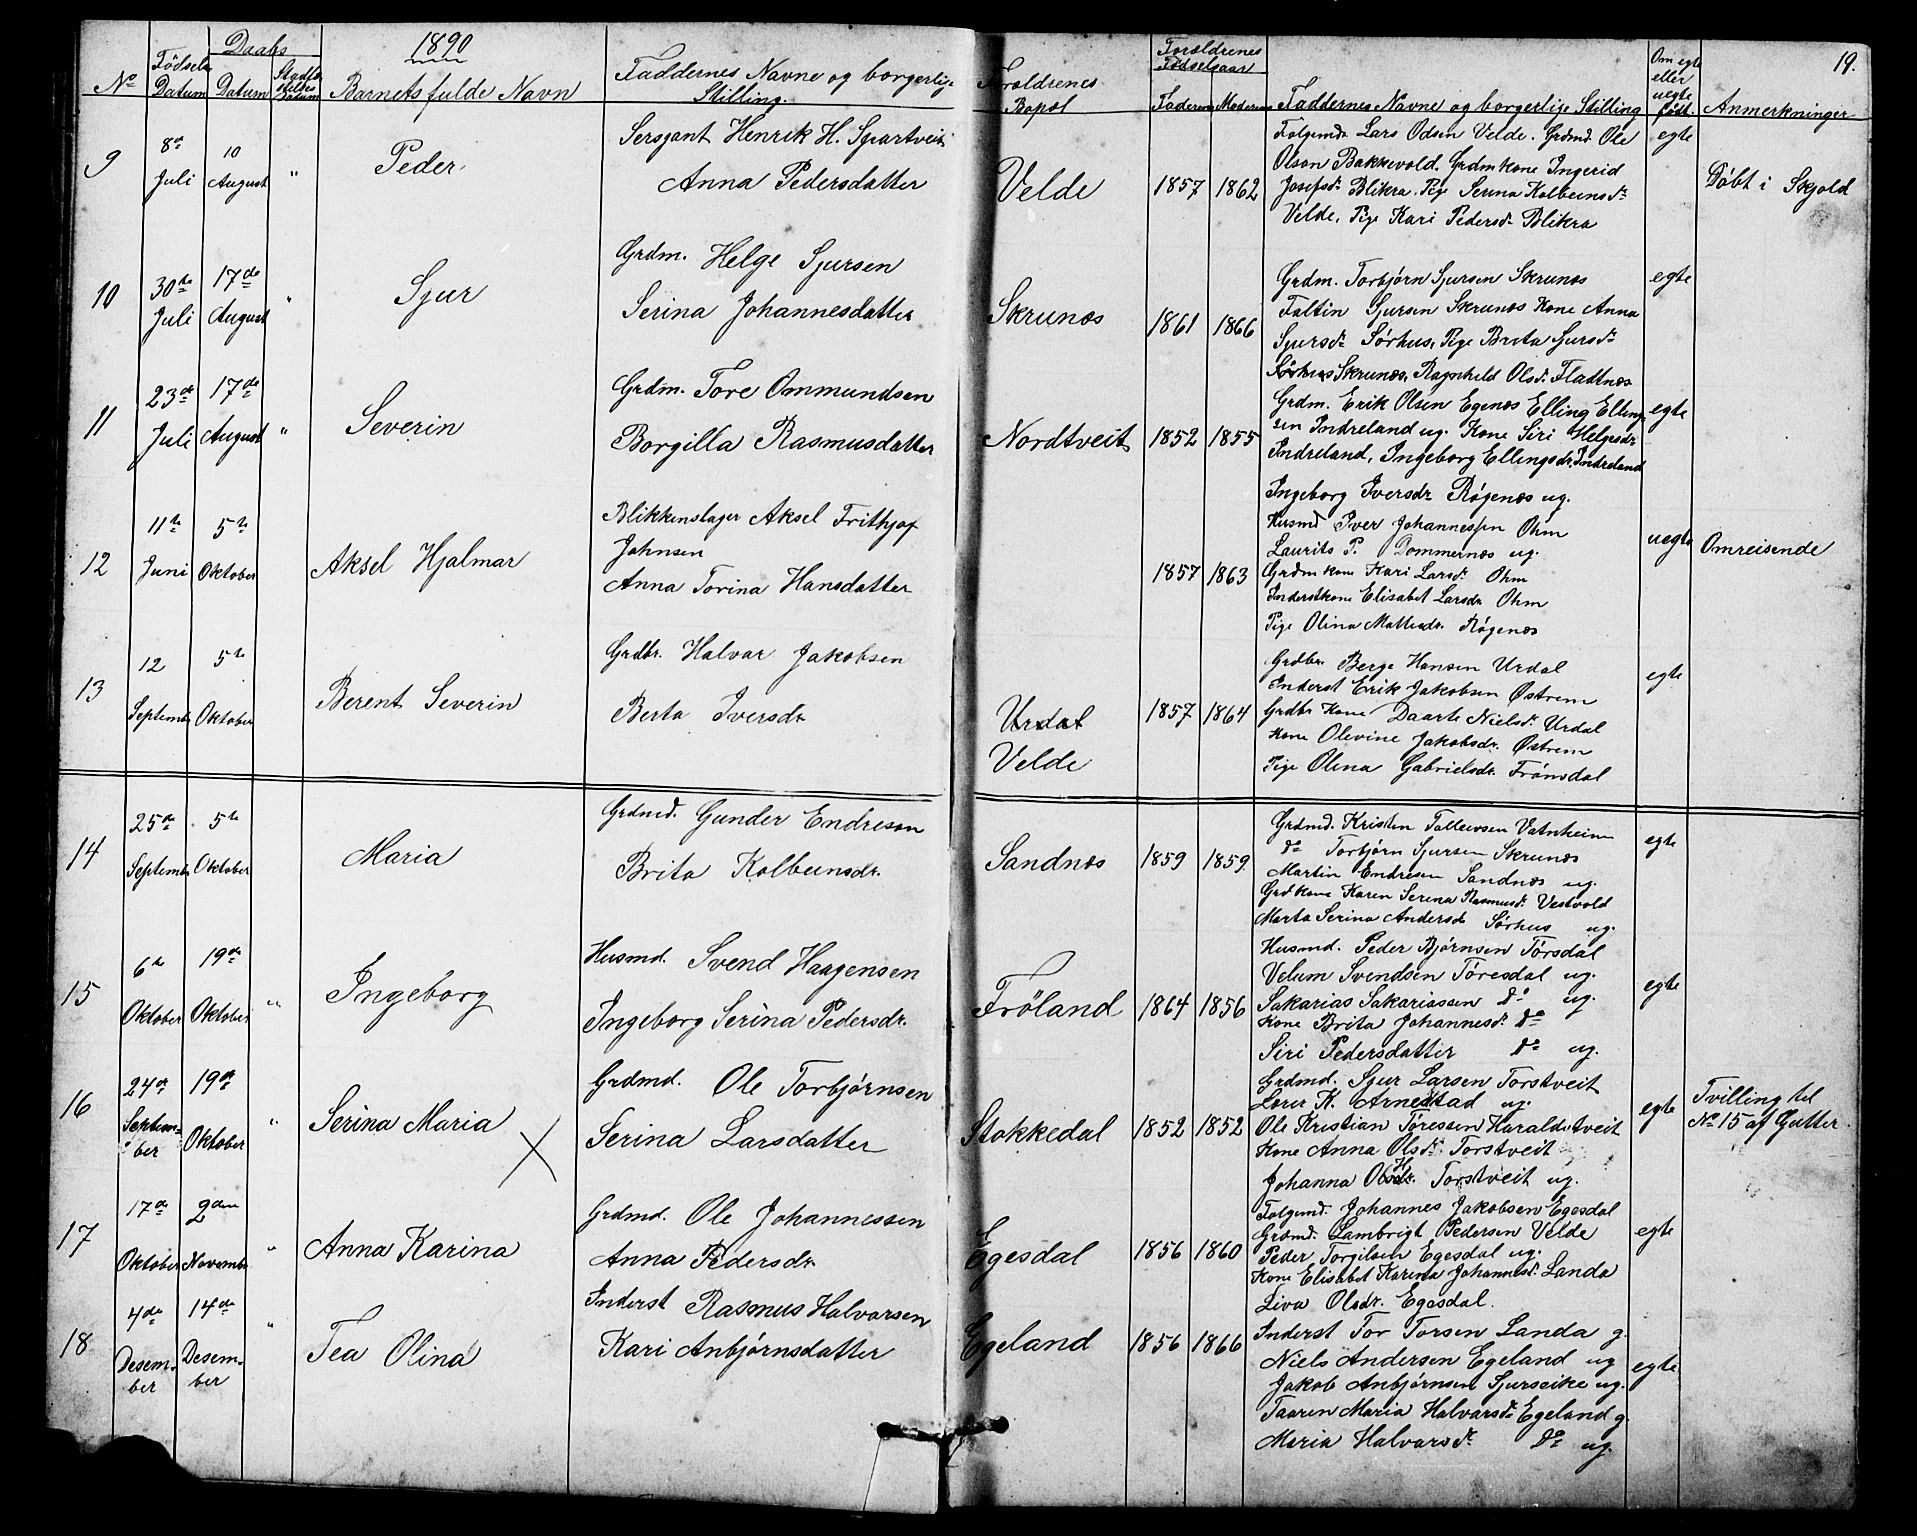 1890
19.
Daabs
Forældrenes
Fødselsaar
No
Fødsels
Datum
Datum
Stadfæstelses
Datum
Barnets fulde Navn
Faddernes Navne og borgerlige
Stilling.
Forældrenes
Bopæl
Faderens
Moderens
Faddernes Navne og borgerlige Stilling
Om egte
eller
uegte
født.
Anmerkninger
9
8de
Juli
10
August
"
Peder.
Sersjant Henrik H. Spartveit
Anna Pedersdatter
Velde
1857
1862
Folgemd. Lars Odsen Velde. Grdmd. Ole
Olson Bakkevold. Grdm kone Ingerid
Josefsdr. Blikra. Pige Serina Kolbeinsdr.
Velde, Pige Kari Pedersdr. Blikra
egte
Døbt i Skjold
10
30te
Juli
17de
August
"
Sjur
Grdm. Helge Sjursen
Serina Johannesdatter
Skrunæs
1861
1866
Grdm. Torbjørn Sjursen Skrunæs
Faltin Sjursen Skrunæs Kone Anna
Sjursdr. Sørhus, Pige Brita Sjursdr.
Skrunæs, Ragnhild Olsdr. Fladtnæs
egte
11
23de
Juli
17de
August
"
Severin
Grdm. Tore Ommundsen
Borgilla Rasmusdatter
Nordtveit
1852
1855
Grdm. Erik Olsen Egenæs Elling Elling-
sen Indreland ug. Kone Siri Helgesdr
Indreland, Ingeborg Ellingsdr. Indreland
Ingeborg Iversdr Røgenæs ug.
egte
12
11te
Juni
5te
Oktober
Aksel Hjalmar
Blikkenslager Aksel Frithjof
Johnsen
Anna Torina Hansdatter
1857
1863
Husmd Iver Johannessen Ohm
Laurits P. Dommernæs ug.
Grdm kone Kari Larsdr. Ohm
Inderstkone Elisabet Larsdr. Ohm
Pige Olina Mathesdr. Røgenæs
uegte
Omreisende
13
12
Septembr
5te
Oktober
Berent Severin
Grdbr. Halvar Jakobsen
Berta Iversdr.
Urdal
Velde
1857
1864
Grdbr. Berge Hansen Urdal
Inderst Erik Jakobsen Østrem
Grdbr kone Daarte Nielsdr. Urdal
Kone Olevine Jakobsdr. Østrem
Pige Olena Gabrielsdr. Frønsdal
egte
14
25de
Septembr
5te
Oktober
Maria
Grdmd. Gunder Endreson
Brita Kolbeinsdr.
Sandnæs
1859
1859
Grdmd. Kristen Tolleivsen Vatnheim
do Torbjørn Sjursen Skrunæs
Martin Endresen Sandnæs ug.
Grdkone Karen Serena Rasmusdr. Vestvold
Marta Serina Andersdr Sørhus ug.
egte
15
6te
Oktober
19de
Oktober
"
Ingeborg
Husmd. Svend Haagensen
Ingeborg Serina Pedersdr.
Frøland
1864
1856
Husmd. Peder Bjørnsen Tørsdal
Velum Svendsen Tøresdal ug.
Sakarias Sakariassen do ug.
Kone Brita Johannesdr. do
Siri Pedersdatter do ug.
egte
16
24de
Septem-
ber
19de
Oktober
"
Serina Maria
X
Grdmd. Ole Torbjørnsen
Serina Larsdatter
Stokkedal
1852
1852
Grdmd. Sjur Larsen Torstveit
K. Arnestad ug.
Ole Kristian Tøressen Haraldstveit
Kone Anna Olsdr. Torstveit
Johanna Torstveit ug.
egte
Tvilling til
No 15 af Gutter.
17
17de
Oktober
2den
Novembr
"
Anna Karina
Grdmd. Ole Johannessen
Anna Pedersdr.
Egesdal
1856
1860
Folgemd. Johannes Jakobsen Egesdal
Grdmd. Lambrigt Pedersen Velde
Peder Torgilsen Egesdal ug.
Kone Elisabet Karina Johannesdr. Landa
Liva Olsdr. Egesdal.
egte
18
4de
Desem-
ber
14de
Desem-
ber
"
Tea Olina
Inderst Rasmus Halvarsen
Kari Anbjørnsdatter
Egeland
1856
1866
Inderst Tor Torsen Landa g.
Niels Andersen Egeland ug
Jakob Anbjørnsen Sjurseike ug.
Taaren Maria Halvarsdr Egeland g.
Maria Halvarsdr. do ug.
egte